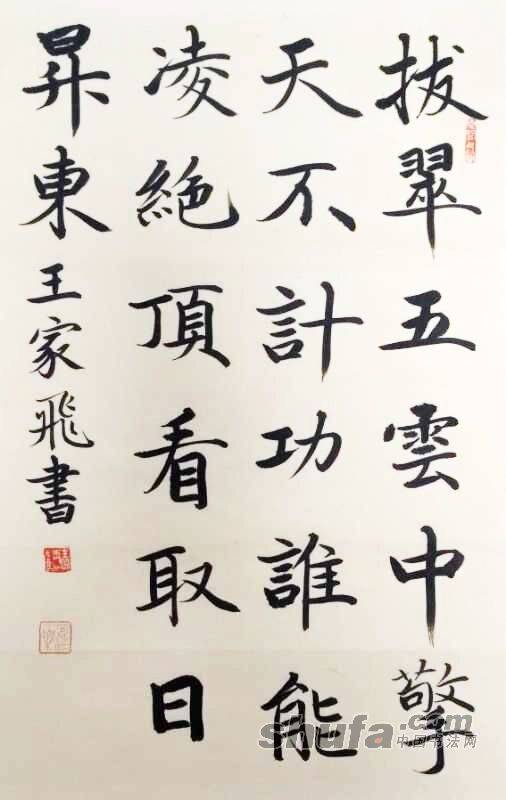 拔翠五雲中擎
天不計功誰能
凌絶頂看取日
昇東
王家飛書
shufa.com
中国书法网